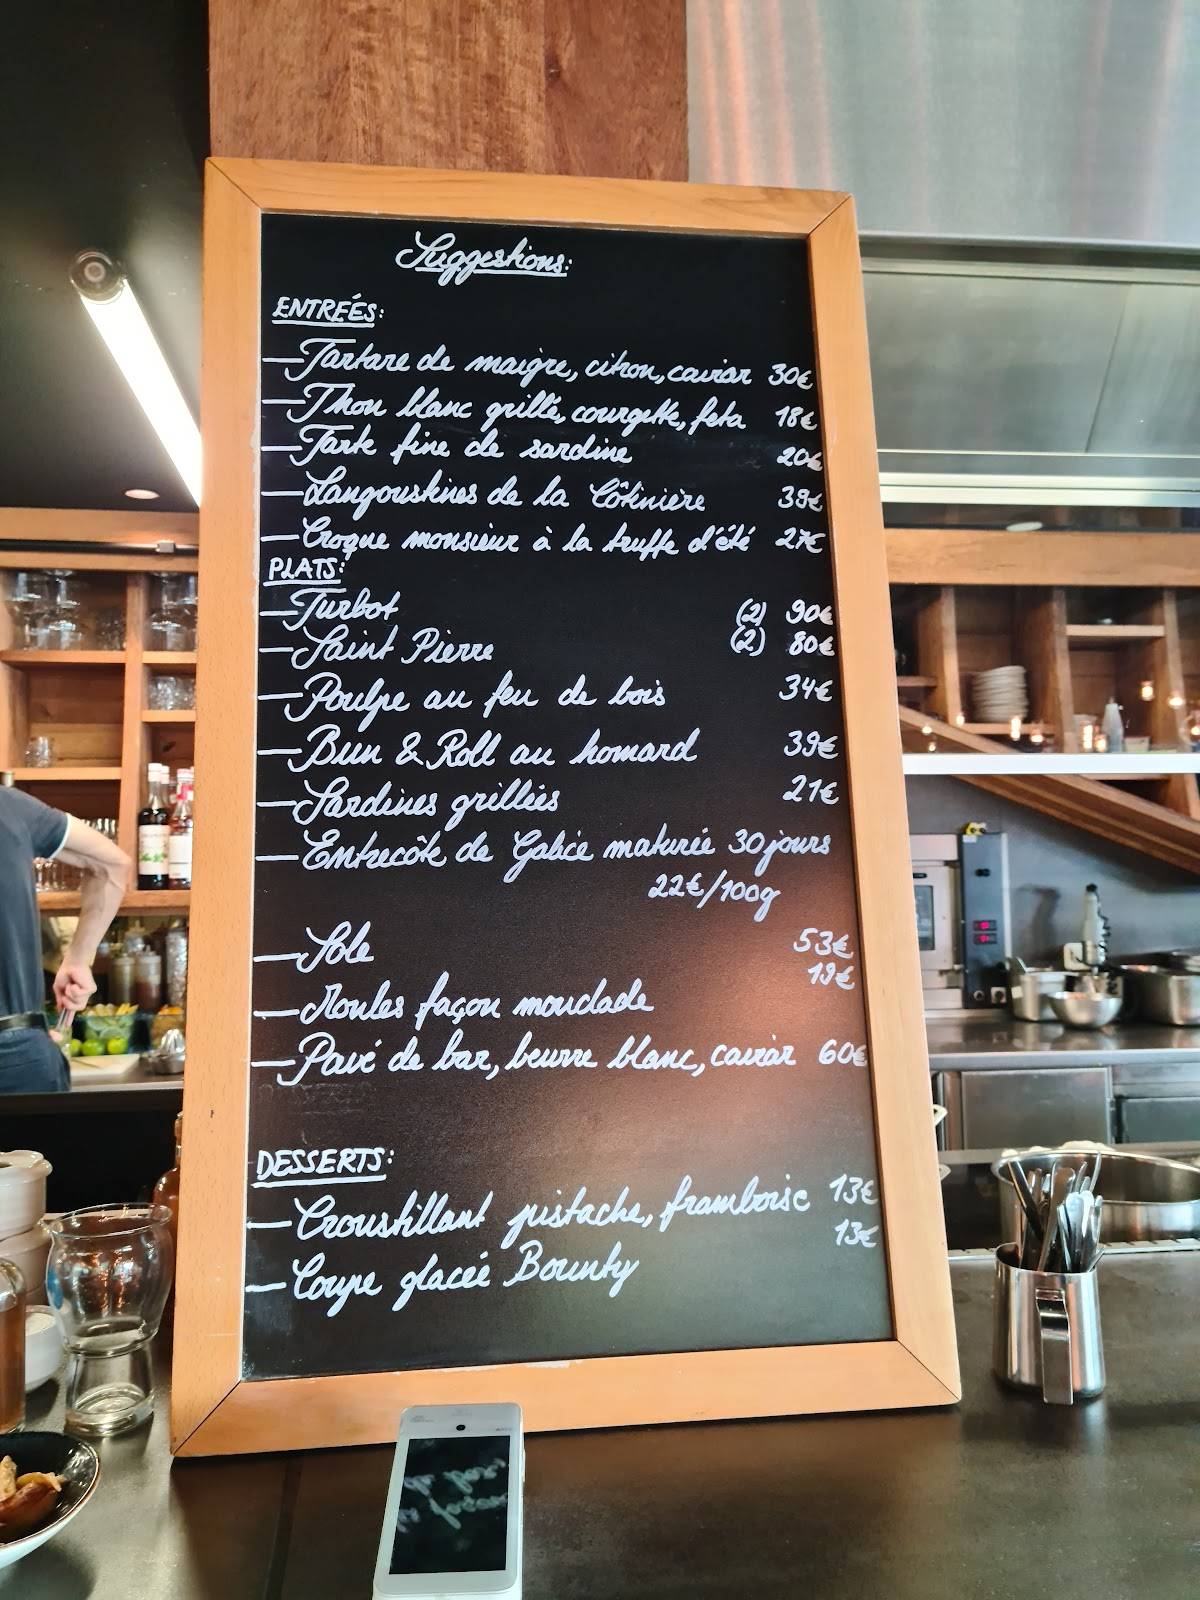 Suggestions:
ENTREÉS:
—Tartare de maigre, citron, caviar 30€
—Thon blanc grillé, courgette, feta 18€
—Tarte fine de sardine 20€
—Langoustines de la Côtinière 39€
—Croque monsieur à la truffe d'été 27€
PLATS:
—Turbot (2) 90€
—Saint Pierre (2) 80€
—Poulpe au feu de bois 34€
—Bun & Roll au homard 39€
—Sardines grillées 21€
—Entrecôte de Galice maturée 30 jours
22€/100g
—Sole 53€
—Moules façon mouclade 19€
—Pavé de bar, beurre blanc, caviar 60€
DESSERTS:
—Croustillant pistache, framboise 13€
—Coupe glacée Bounty 13€